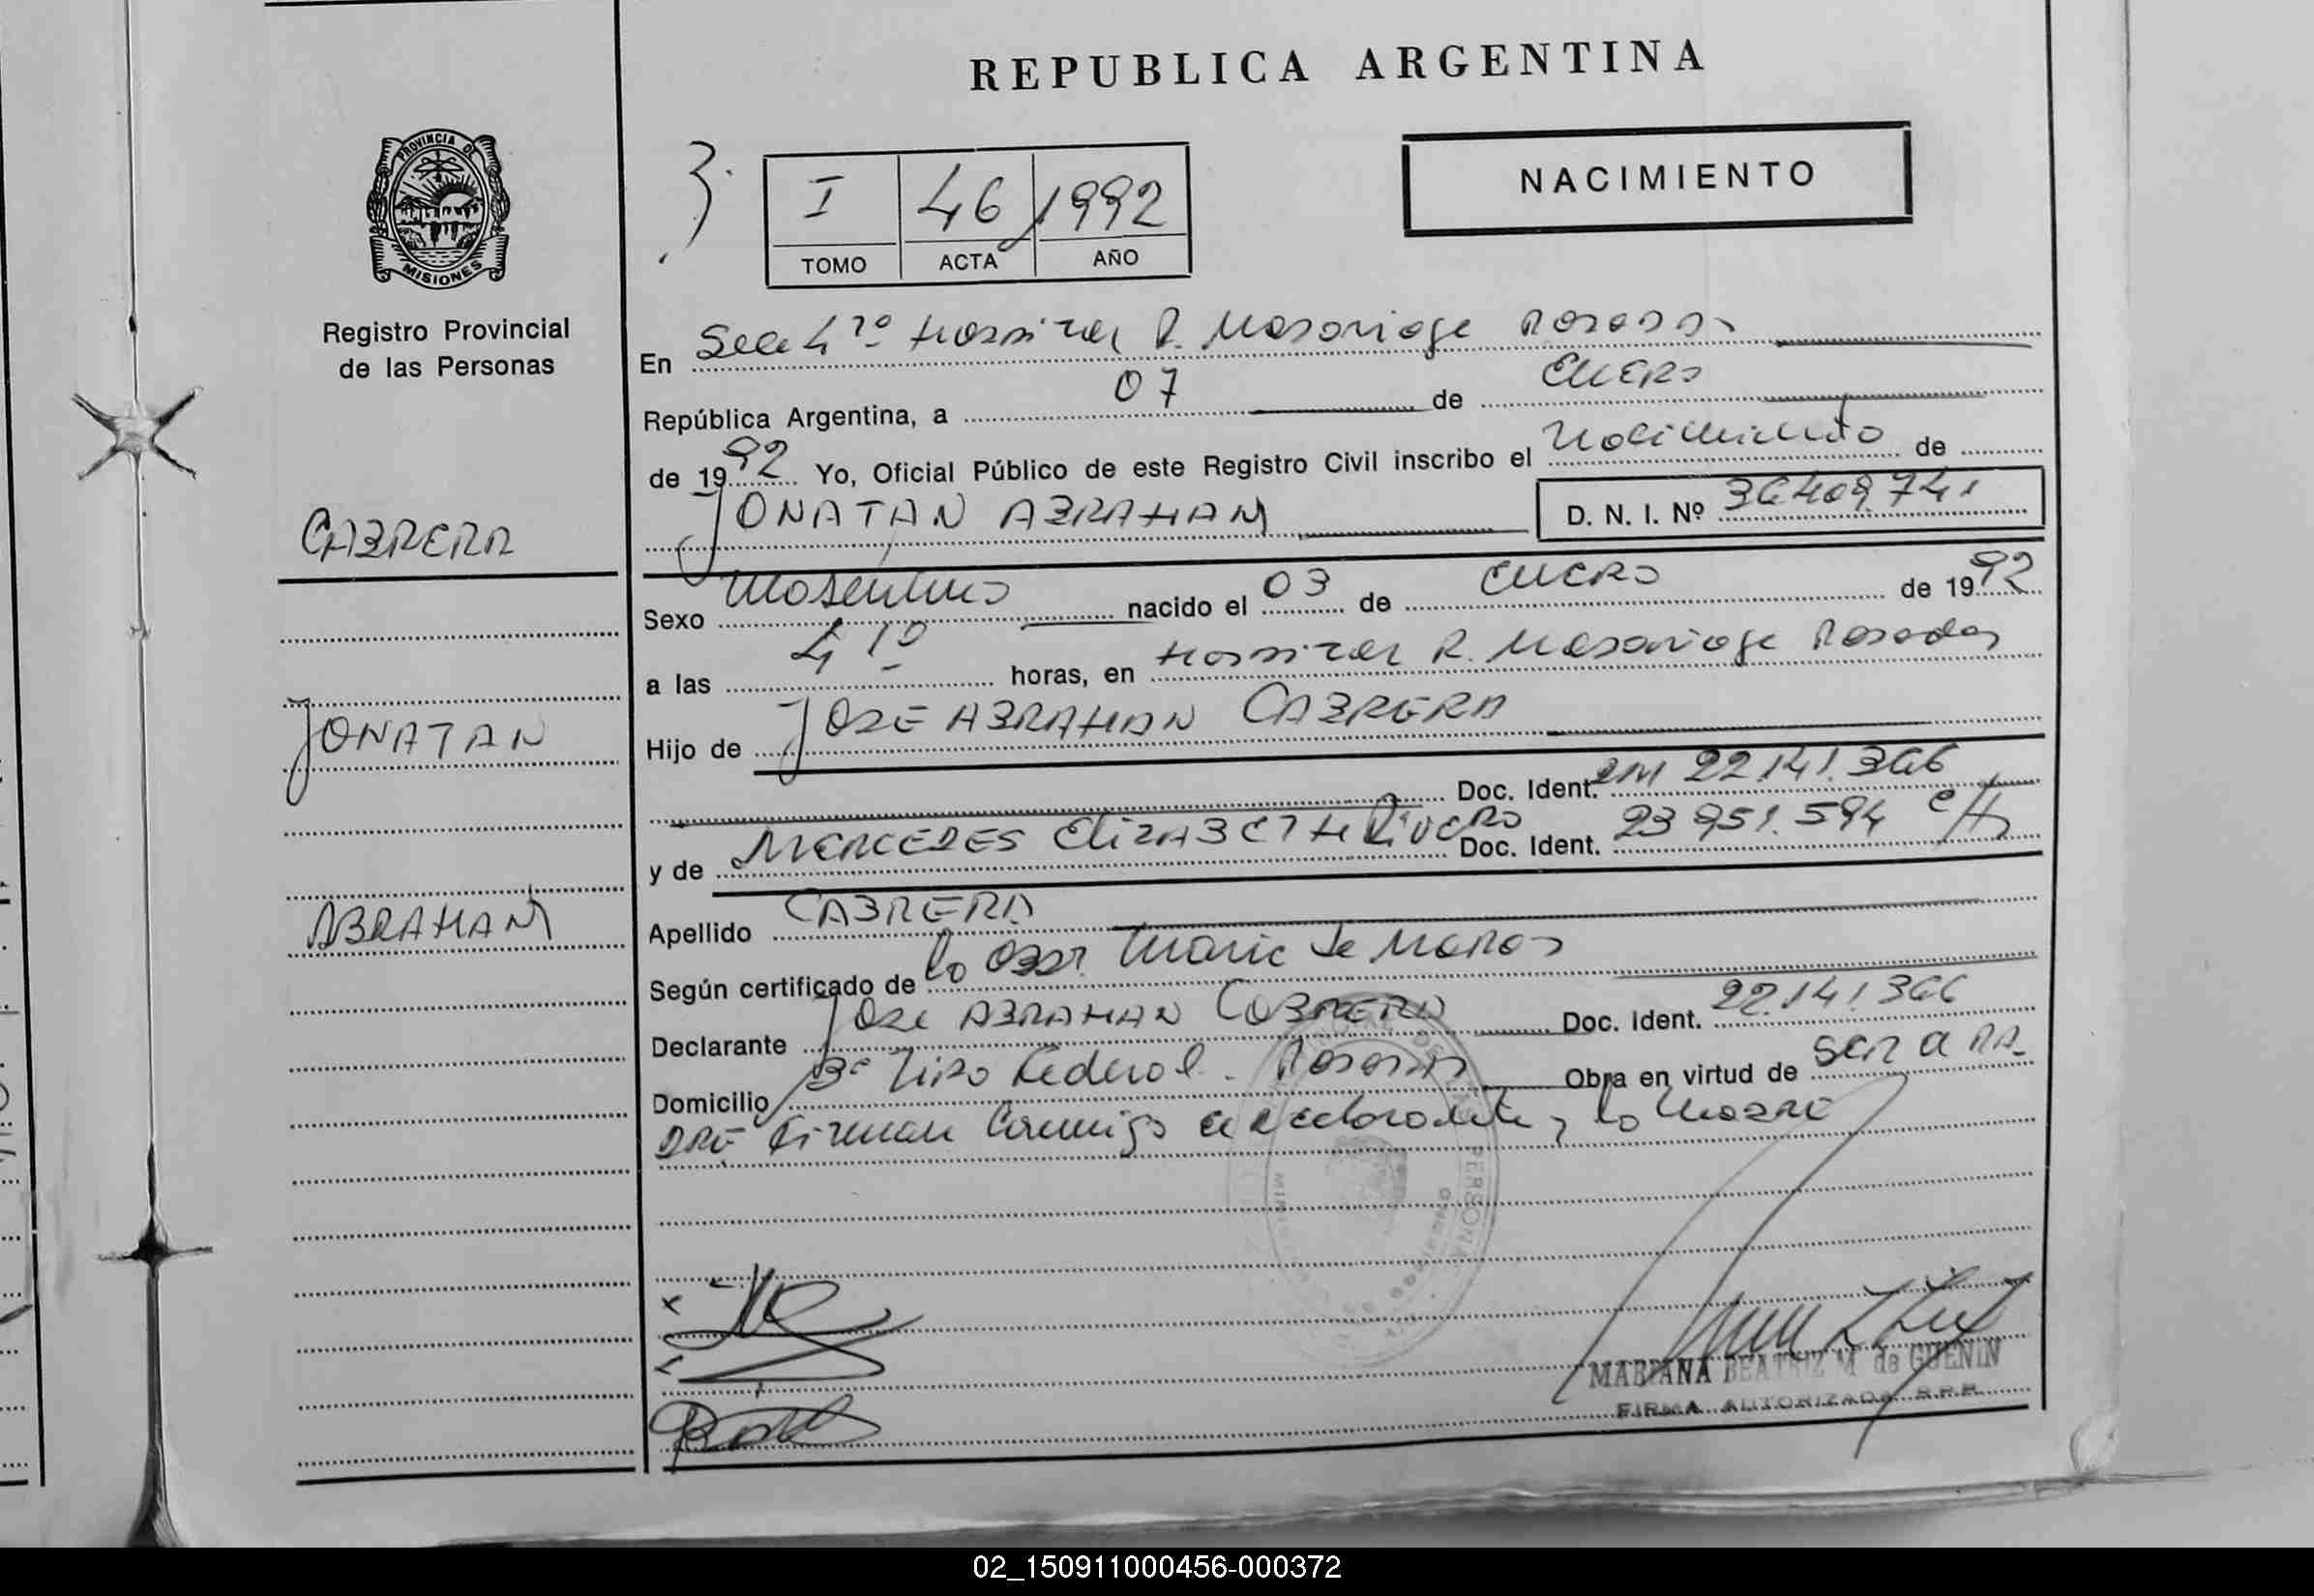 REPUBLICA ARGENTINA
PROVINCIA DE
MISIONES
Registro Provincial
de las Personas
3.
I 46 1992
TOMO ACTA AÑO
NACIMIENTO
En Secc 4ta Hospital R. Madariaga Posadas
República Argentina, a 07 de ENERO
de 1992 Yo, Oficial Público de este Registro Civil inscribo el Nacimiento de
JONATAN ABRAHAM D. N. I. Nº 36.409.741
CABRERA
JONATAN
ABRAHAM
Sexo Masculino nacido el 03 de ENERO de 1992
a las 4 10 horas, en Hospital R. Madariaga Posadas
Hijo de JOSE ABRAHAN CABRERA
Doc. Ident. DM 22.141.366
y de MERCEDES ELIZABETH Rivero Doc. Ident. 23 951.594
Apellido CABRERA
Según certificado de la Obst. Maria de
Declarante JOSE ABRAHAN CABRERA Doc. Ident. 22.141.366
Domicilio Bº Tiro Federal. Posadas Obra en virtud de SER
Firman Conmigo el declarante y la Madre
MARIANA BEATRIZ M de GUENIN
FIRMA AUTORIZADA R.P.P.
02_150911000456-000372